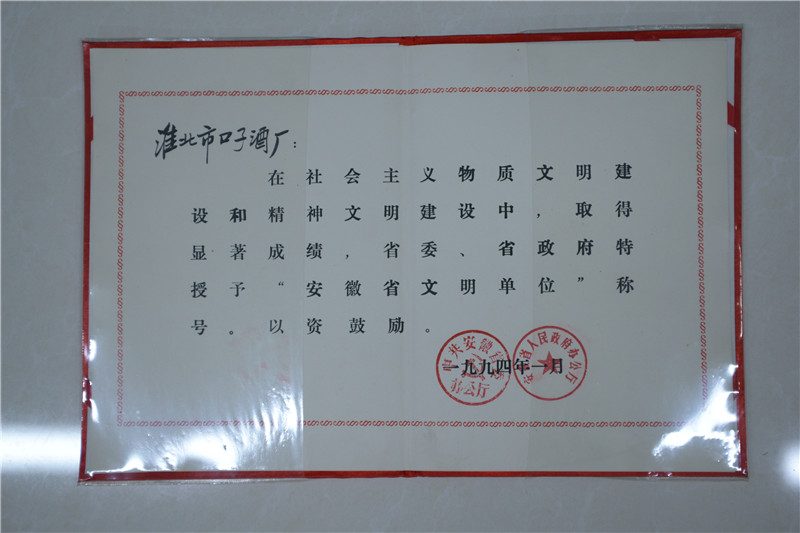 淮北市口子酒厂：
在社会主义物质文明建
设和精神文明建设中，取得
显著成绩，省委、省政府特
授予“安徽省文明单位”称
号。以资鼓励。
中共安徽省委
办公厅
安徽省人民政府办公厅
一九九四年一月